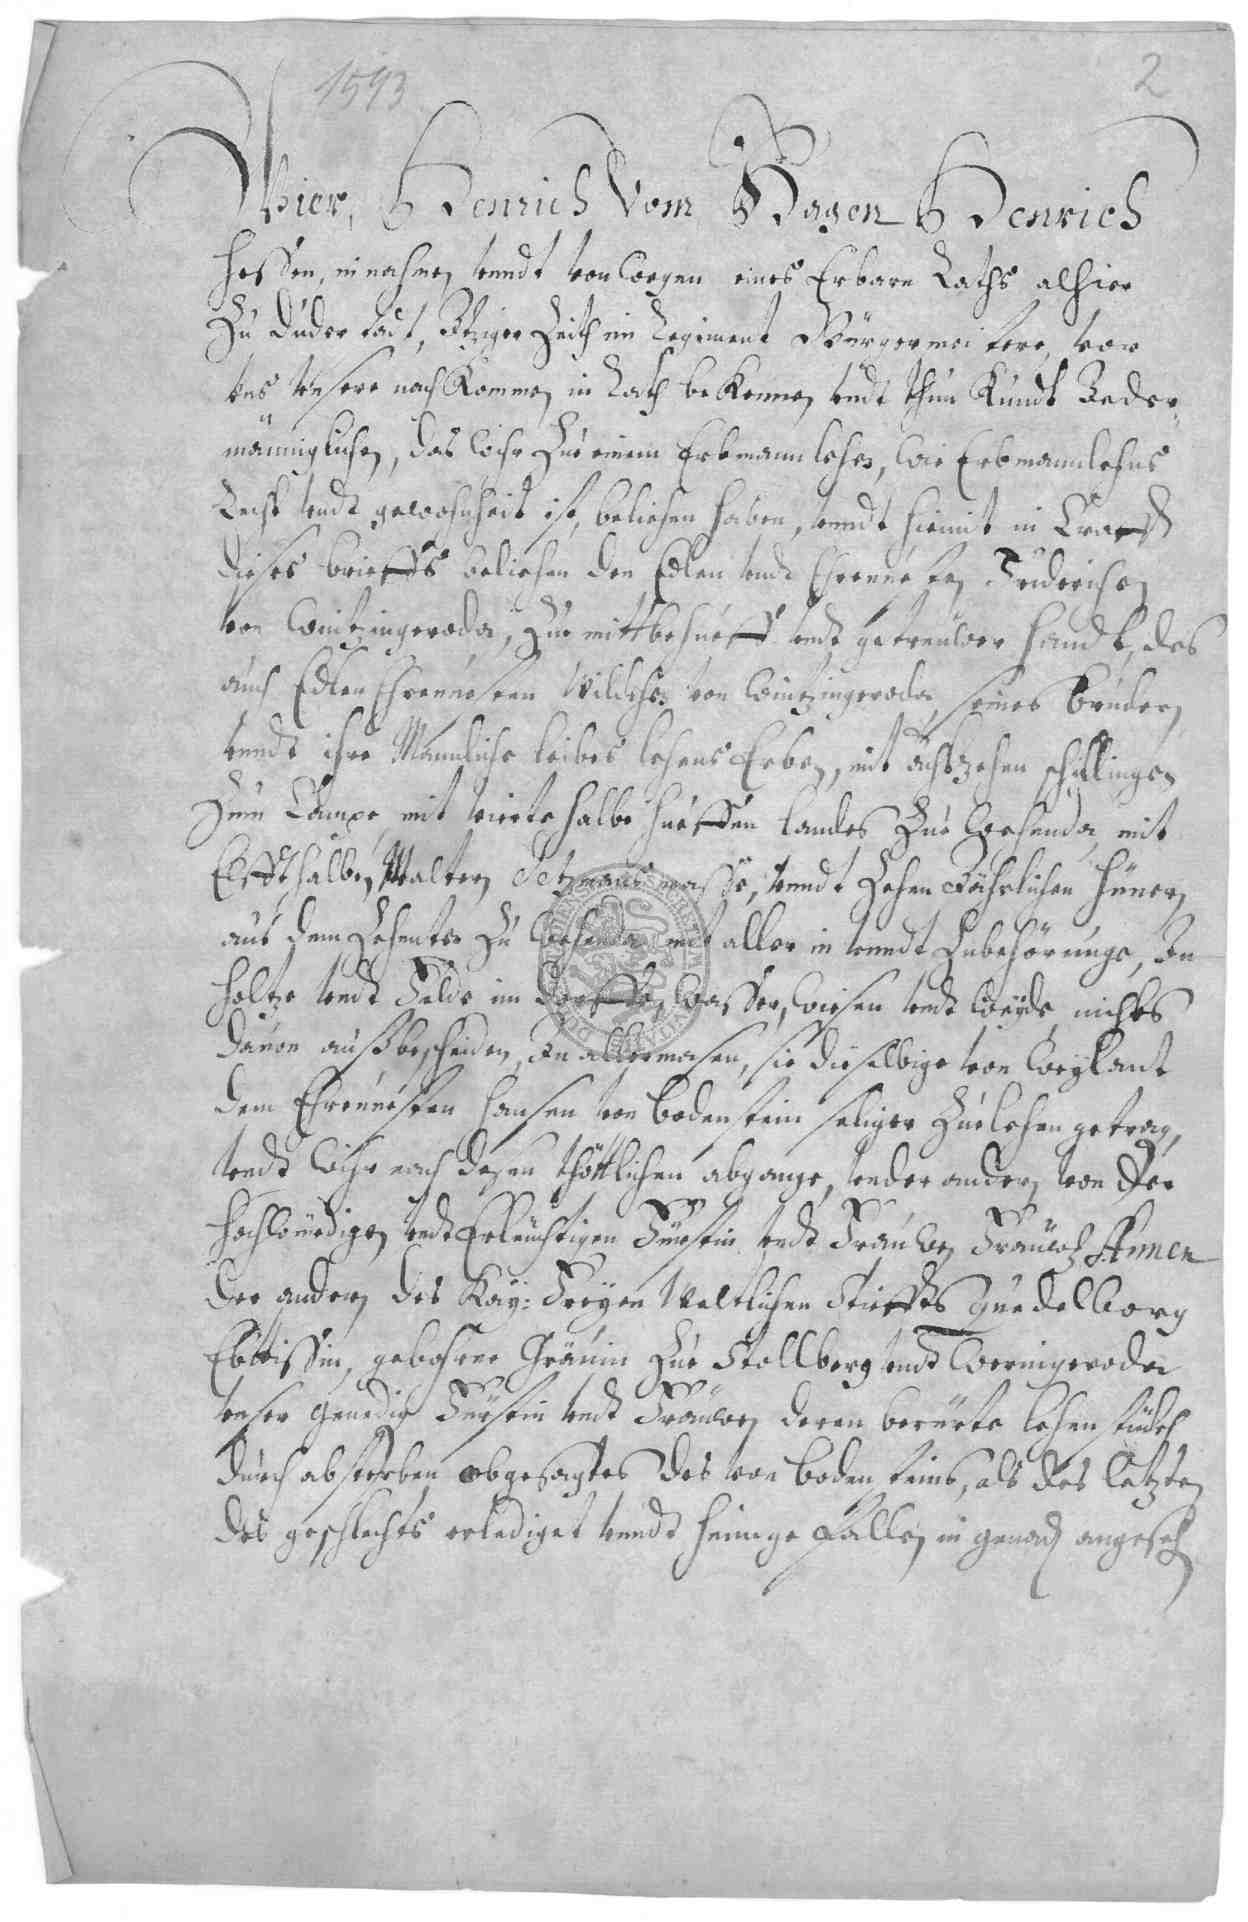 1593
2
Wier, Henrich Vom Hagen Henrich
Hessen, in nahmen undt von wegen eines Erbarn Raths alhier
Zu Duderstadt, Itziger Zeith im Regiment Bürgermeistere, vor
uns unsere nachkommen in Rath bekennen undt thun kundt Jeder-
männiglichen, das wihr Zue einem Erbmannlehen, wie Erbmannlehns
Recht undt gewohnheit ist, beliehen haben, undt hiemit in Crafft
dieses brieffs beliehen den Edlen undt Ehrenuesten Friderichen
von Wintzingeroda, Zue mittbehueff undt getreuwer handt, des
auch Edlen Ehrenuesten Wilckhen von Wintzingeroda seines bruders
undt ihre Mannliche leibes lehens Erben, mit achtzehen schillingen
Zum Campe mit vierte halbe hueffen landes Zue Wehenda, mit
Elffthalben Malter Setzmans masse, undt Zehen Jährlichen hüner
aus dem Zehenten Zu Wehenda mit aller in undt Zubehörunge, In
holtze undt Felde im Dorffe, wasser, wiesen undt weyde nichts
dauon außbescheiden, In allermasen, sie dieselbige von weylant
dem Ehrenuesten Hansen von Bodenstein seliger Zue lehen getragen,
undt wihr nach desen thöttlichen abgange, under andern von der
hochwürdigen undt Erleuchtigen Fürstin undt Frauwen Frauwen Annen
der andern des Kay: Freyen Weltlichen Stieffts Quedelborg
Ebttissin, gebohrne Gräuin Zue Stollberg undt Werningeroda
unser Genedige Fürstin undt Frauwen deren berürte lehen stücke
durch absterben obgesagtes des von Bodensteins, als des letzten
des geschlechts erlediget undt heimge fallen in genaden angesehen